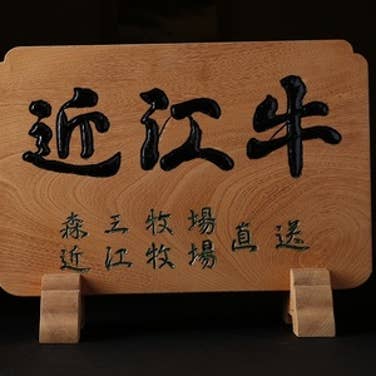 近江牛
森三牧場
近江牧場 直送